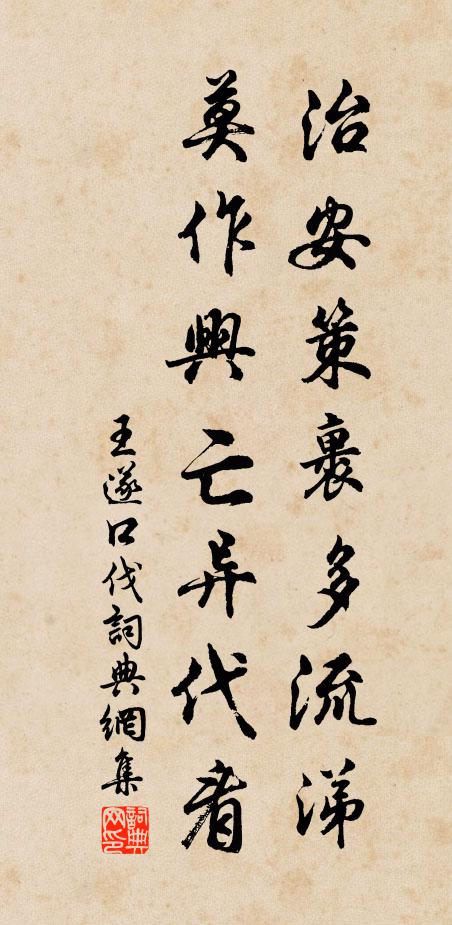 治安策裏多流涕
莫作興亡异代看
王遂口伐詞典網集
詞典网印